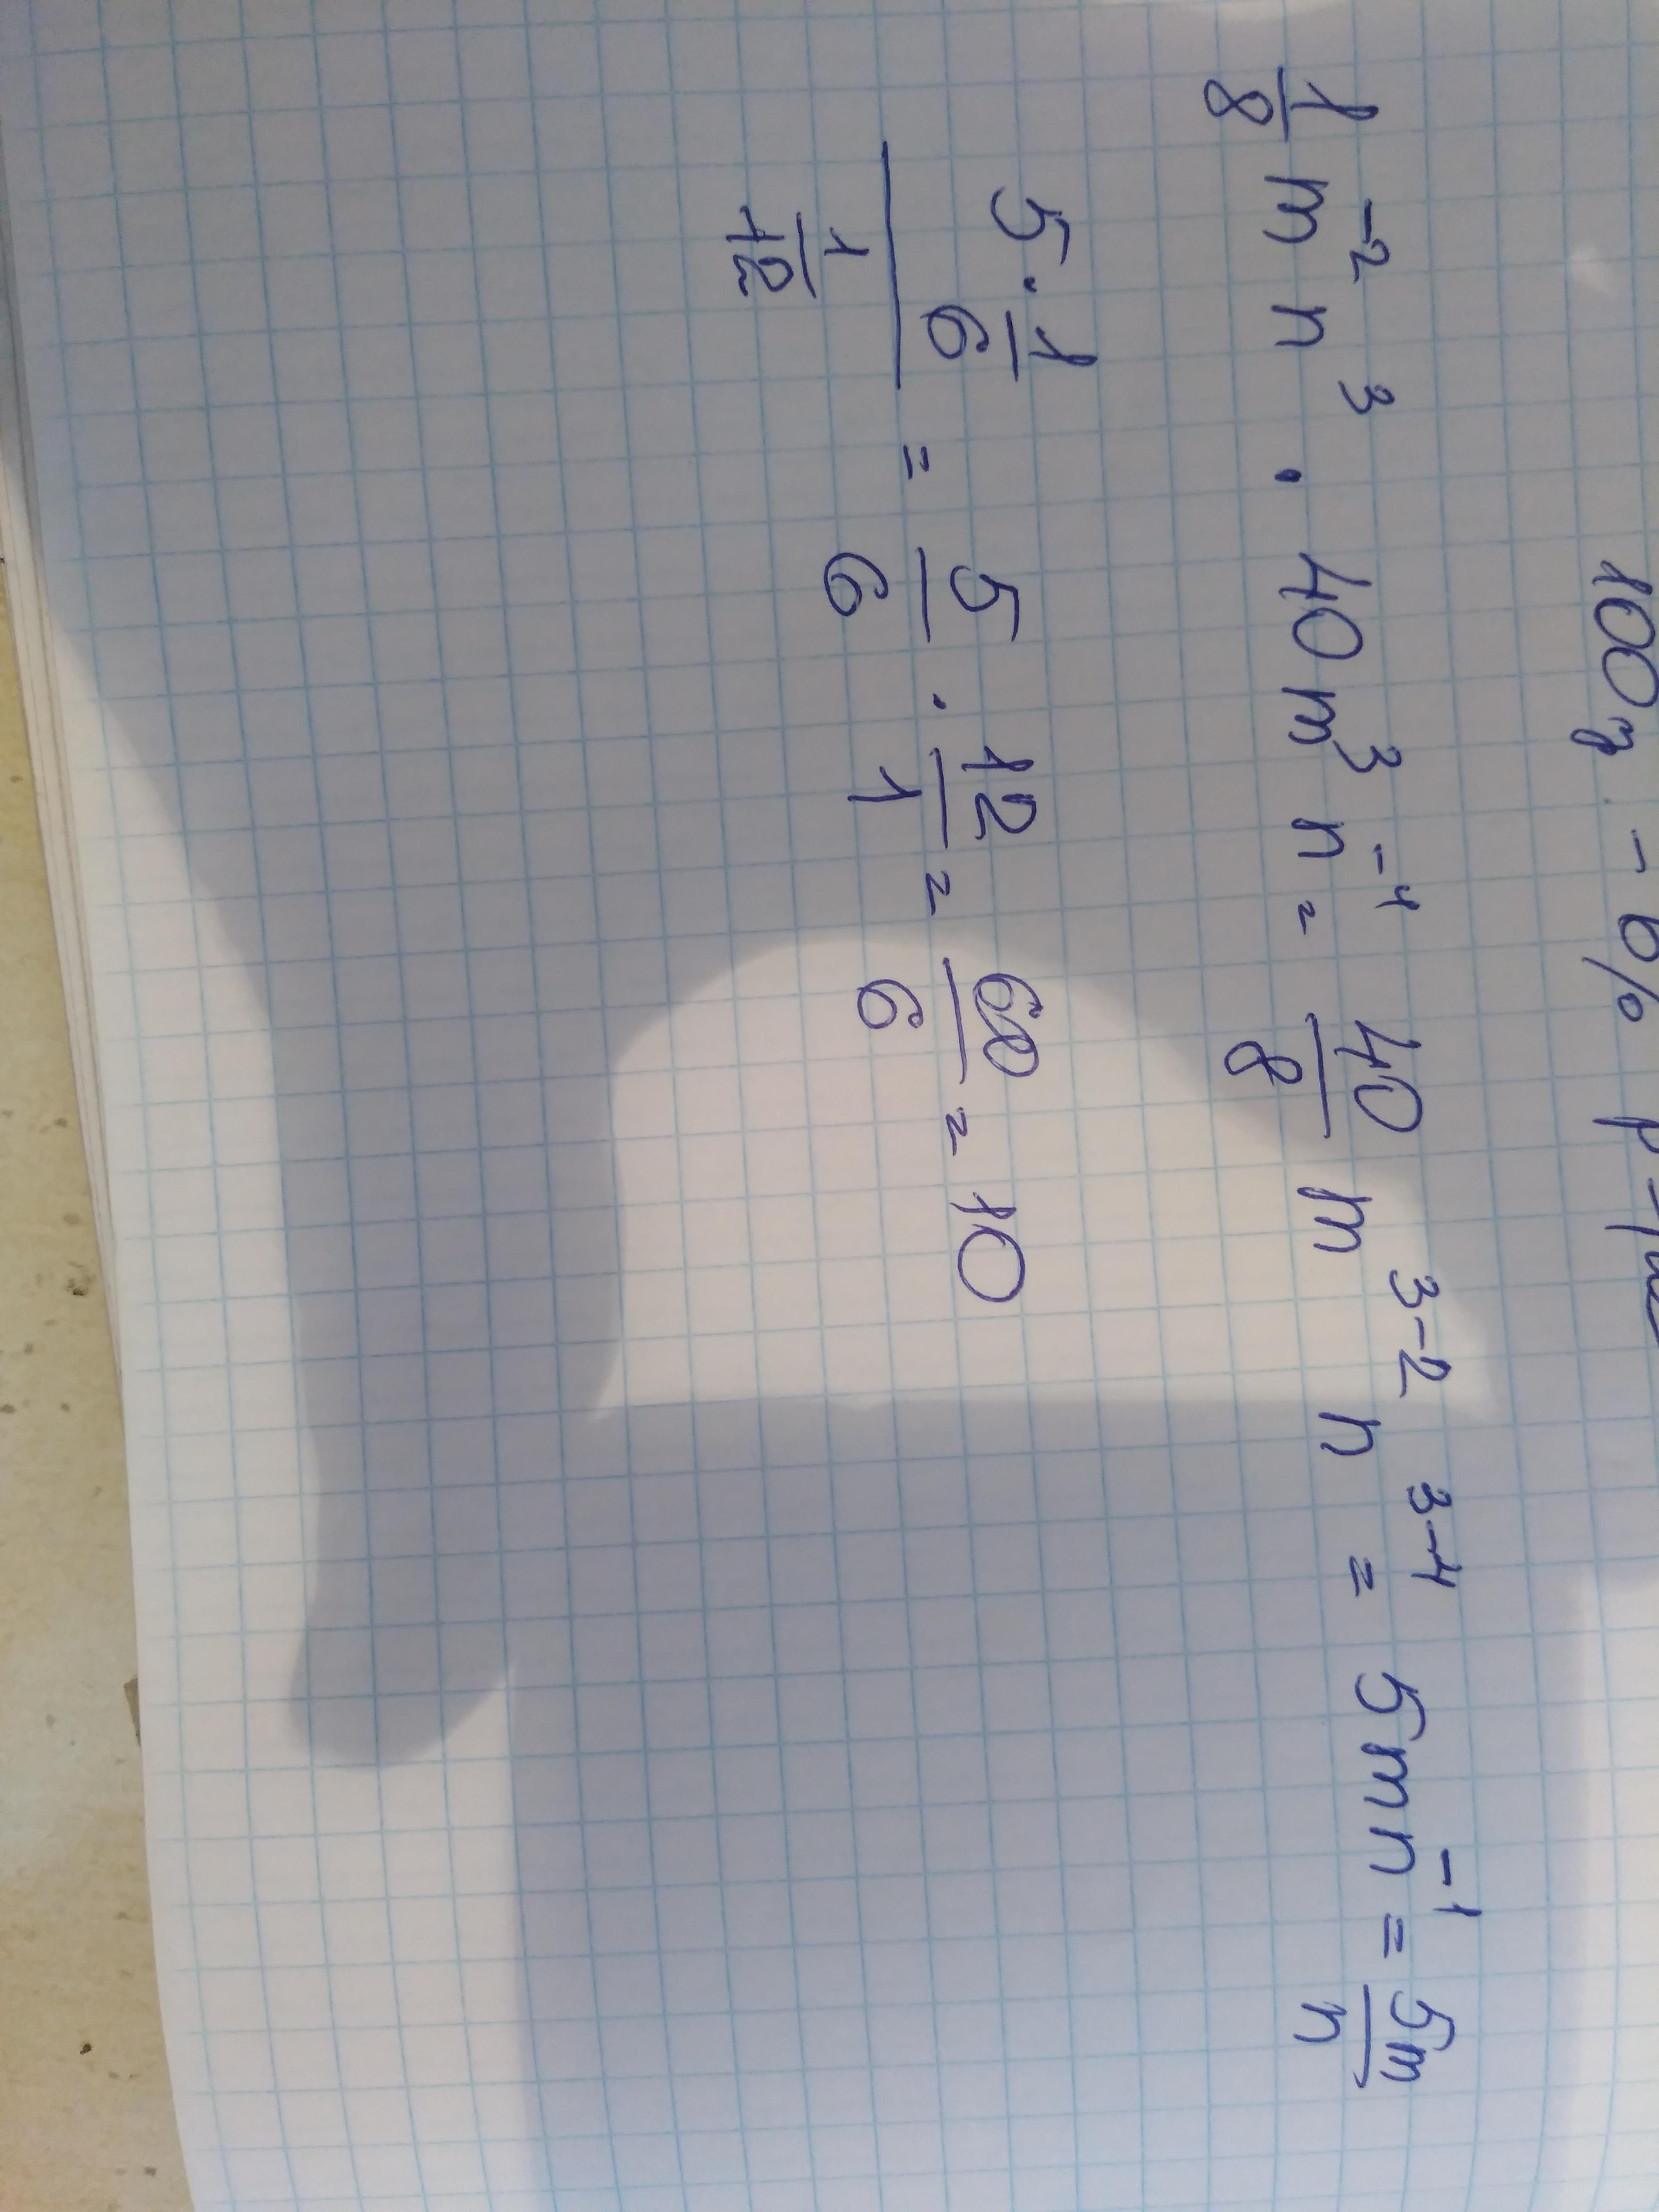 100 г. - 6% р-
1/8 m⁻² n³ · 40 m³ n⁻⁴ = 40/8 m³⁻² n³⁻⁴ = 5 m n⁻¹ = 5m/n
(5 · 1/6)/(1/12) = 5/6 · 12/1 = 60/6 = 10